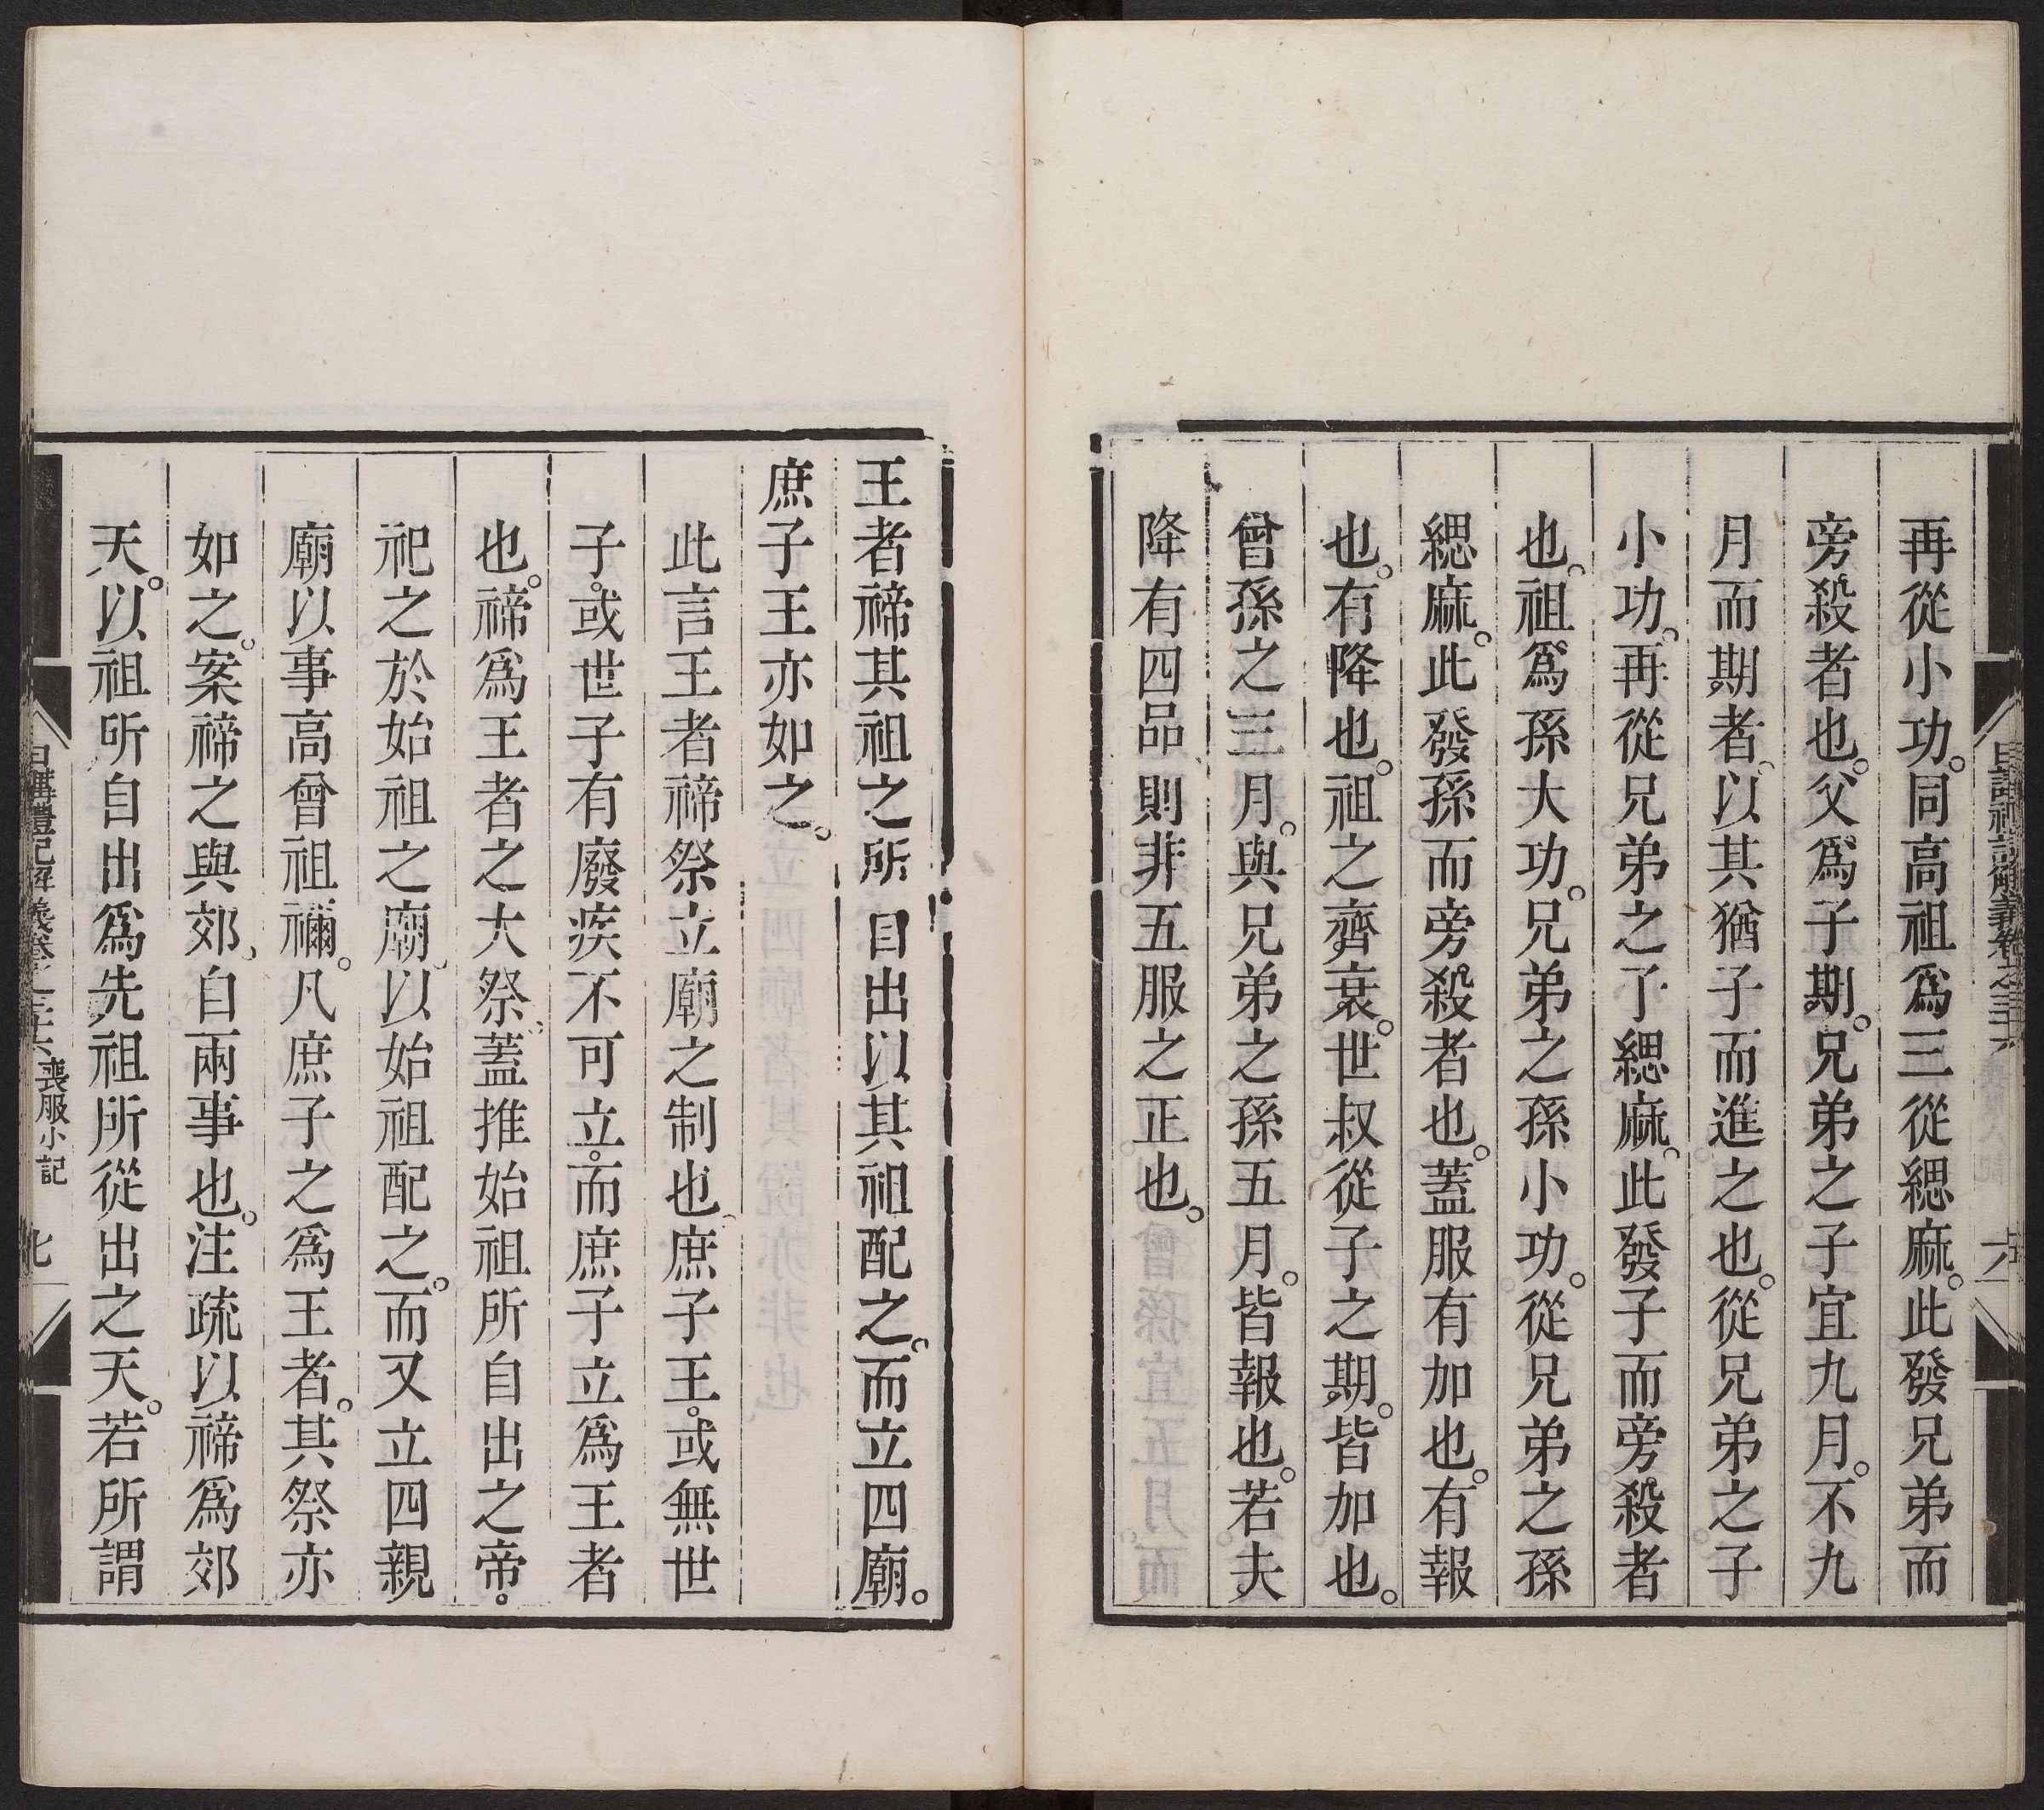 再從小功。同高祖爲三從緦麻。此發兄弟而
旁殺者也。父爲子期。兄弟之子宜九月。不九
月而期者、以其猶子而進之也。從兄弟之子
小功、再從兄弟之子緦麻。此發子而旁殺者
也。祖爲孫大功。兄弟之孫小功。從兄弟之孫
緦麻。此發孫而旁殺者也。蓋服有加也。有報
也。有降也。祖之齊衰。世叔從子之期。皆加也。
曾孫之三月。與兄弟之孫五月。皆報也。若夫
降有四品則非五服之正也。
王者禘其祖之所自出以其祖配之。而立四廟。
庶子王亦如之。
此言王者禘祭立廟之制也、庶子王。或無世
子。或世子有廢疾不可立。而庶子立爲王者
也。禘爲王者之大祭、蓋推始祖所自出之帝。
祀之於始祖之廟、以始祖配之。而又立四親
廟以事高曾祖禰。凡庶子之爲王者。其祭亦
如之。案禘之與郊、自兩事也。注疏以禘爲郊
天。以祖所自出爲先祖所從出之天。若所謂
日講禮記解義卷之三十六 喪服小記